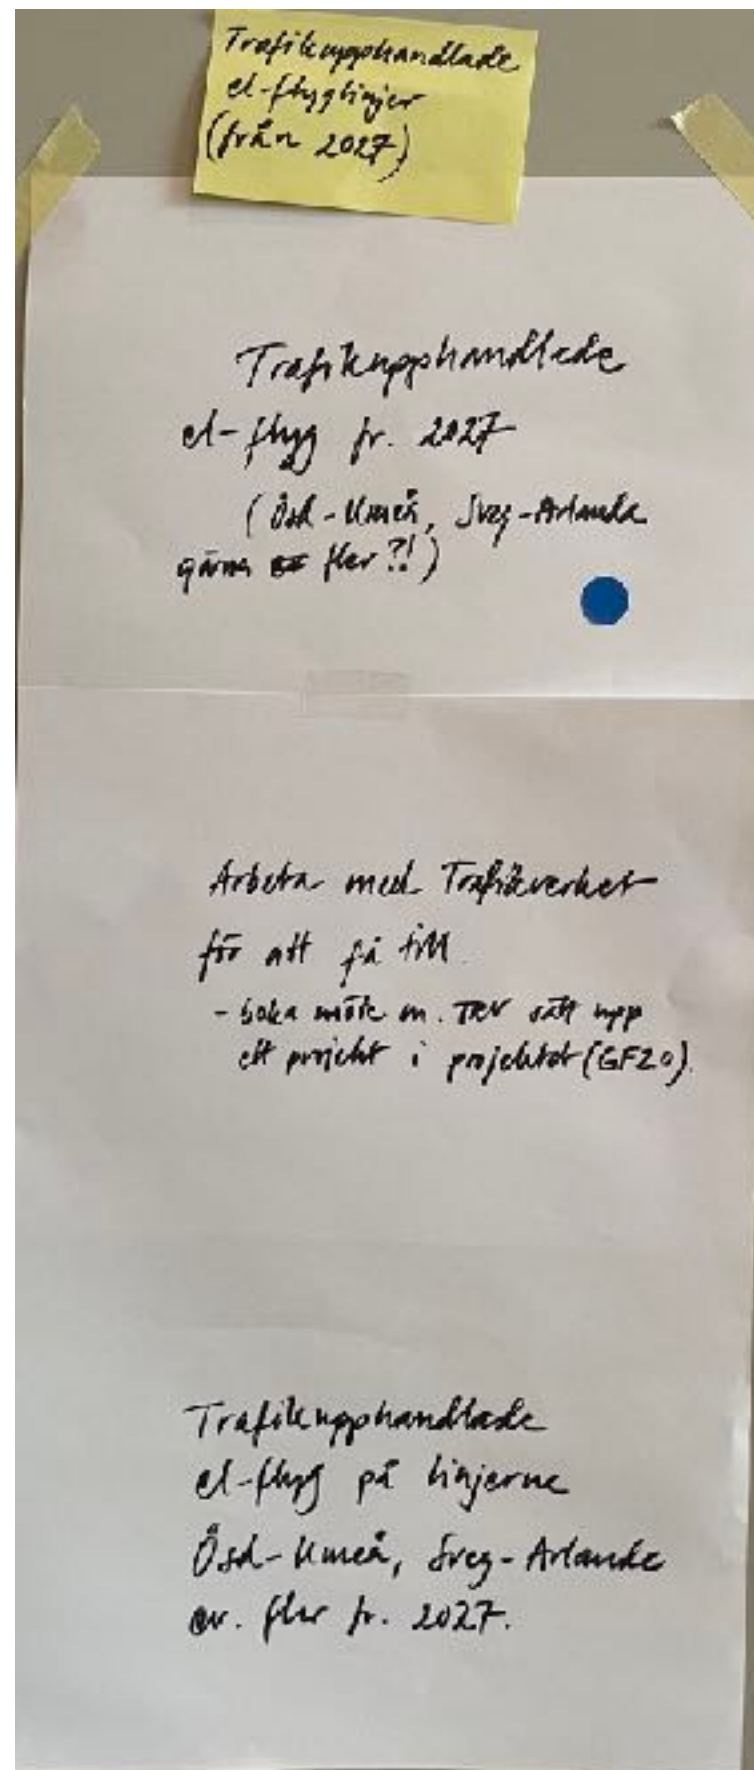 Trafikupphandlade
el-flyglinjer
(från 2027)
Trafikupphandlade
el-flyg fr. 2027
(Ösd-Umeå, Sveg-Arlanda
gärna fler?!)
Arbeta med Trafikverket
för att få till.
- boka möte m. TRV sätt upp
ett projekt i projektet (GF20).
Trafikupphandlade
el-flyg på linjerna
Ösd-Umeå, Sveg-Arlanda
ev. fler fr. 2027.